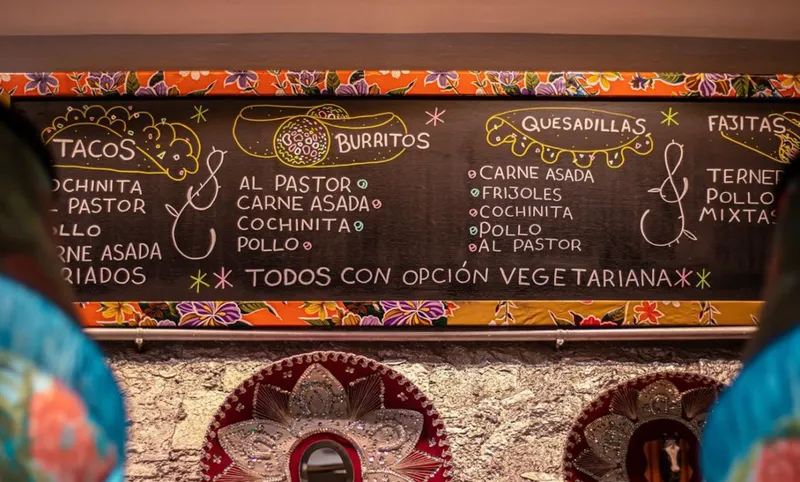 TACOS
OCHINITA
L PASTOR
OLLO
RNE ASADA
RIADOS
BURRITOS
AL PASTOR
CARNE ASADA
COCHINITA
POLLO
QUESADILLAS
CARNE ASADA
FRIJOLES
COCHINITA
POLLO
AL PASTOR
FAJITAS
TERNER
POLLO
MIXTAS
TODOS CON OPCIÓN VEGETARIANA